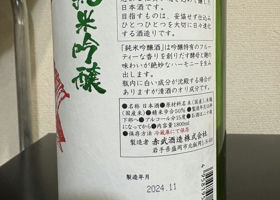 純米吟醸
日本酒です。
目指すものは、妥協せず仕込み
ひとつひとつを大切に日々
する酒造りです。
「純米吟醸酒」は吟醸特有のフルー
ティーな香りを創りだす酵母と麹の
味わいが絶妙なハーモニーを生み
出します。
瓶内に白い成分が沈殿する場合が
ありますが清酒のオリ成分です。
●名称 日本酒 ●原材料名 米(国産)、米麹
(国産米) ●精米歩合50%
●アルコール分15度 ●お酒は二十歳
になってから ●内容量1800ml
●保存方法 冷蔵庫にて保存
製造者 赤武酒造株式会社
岩手県盛岡市北飯岡
製造年月
2024.11